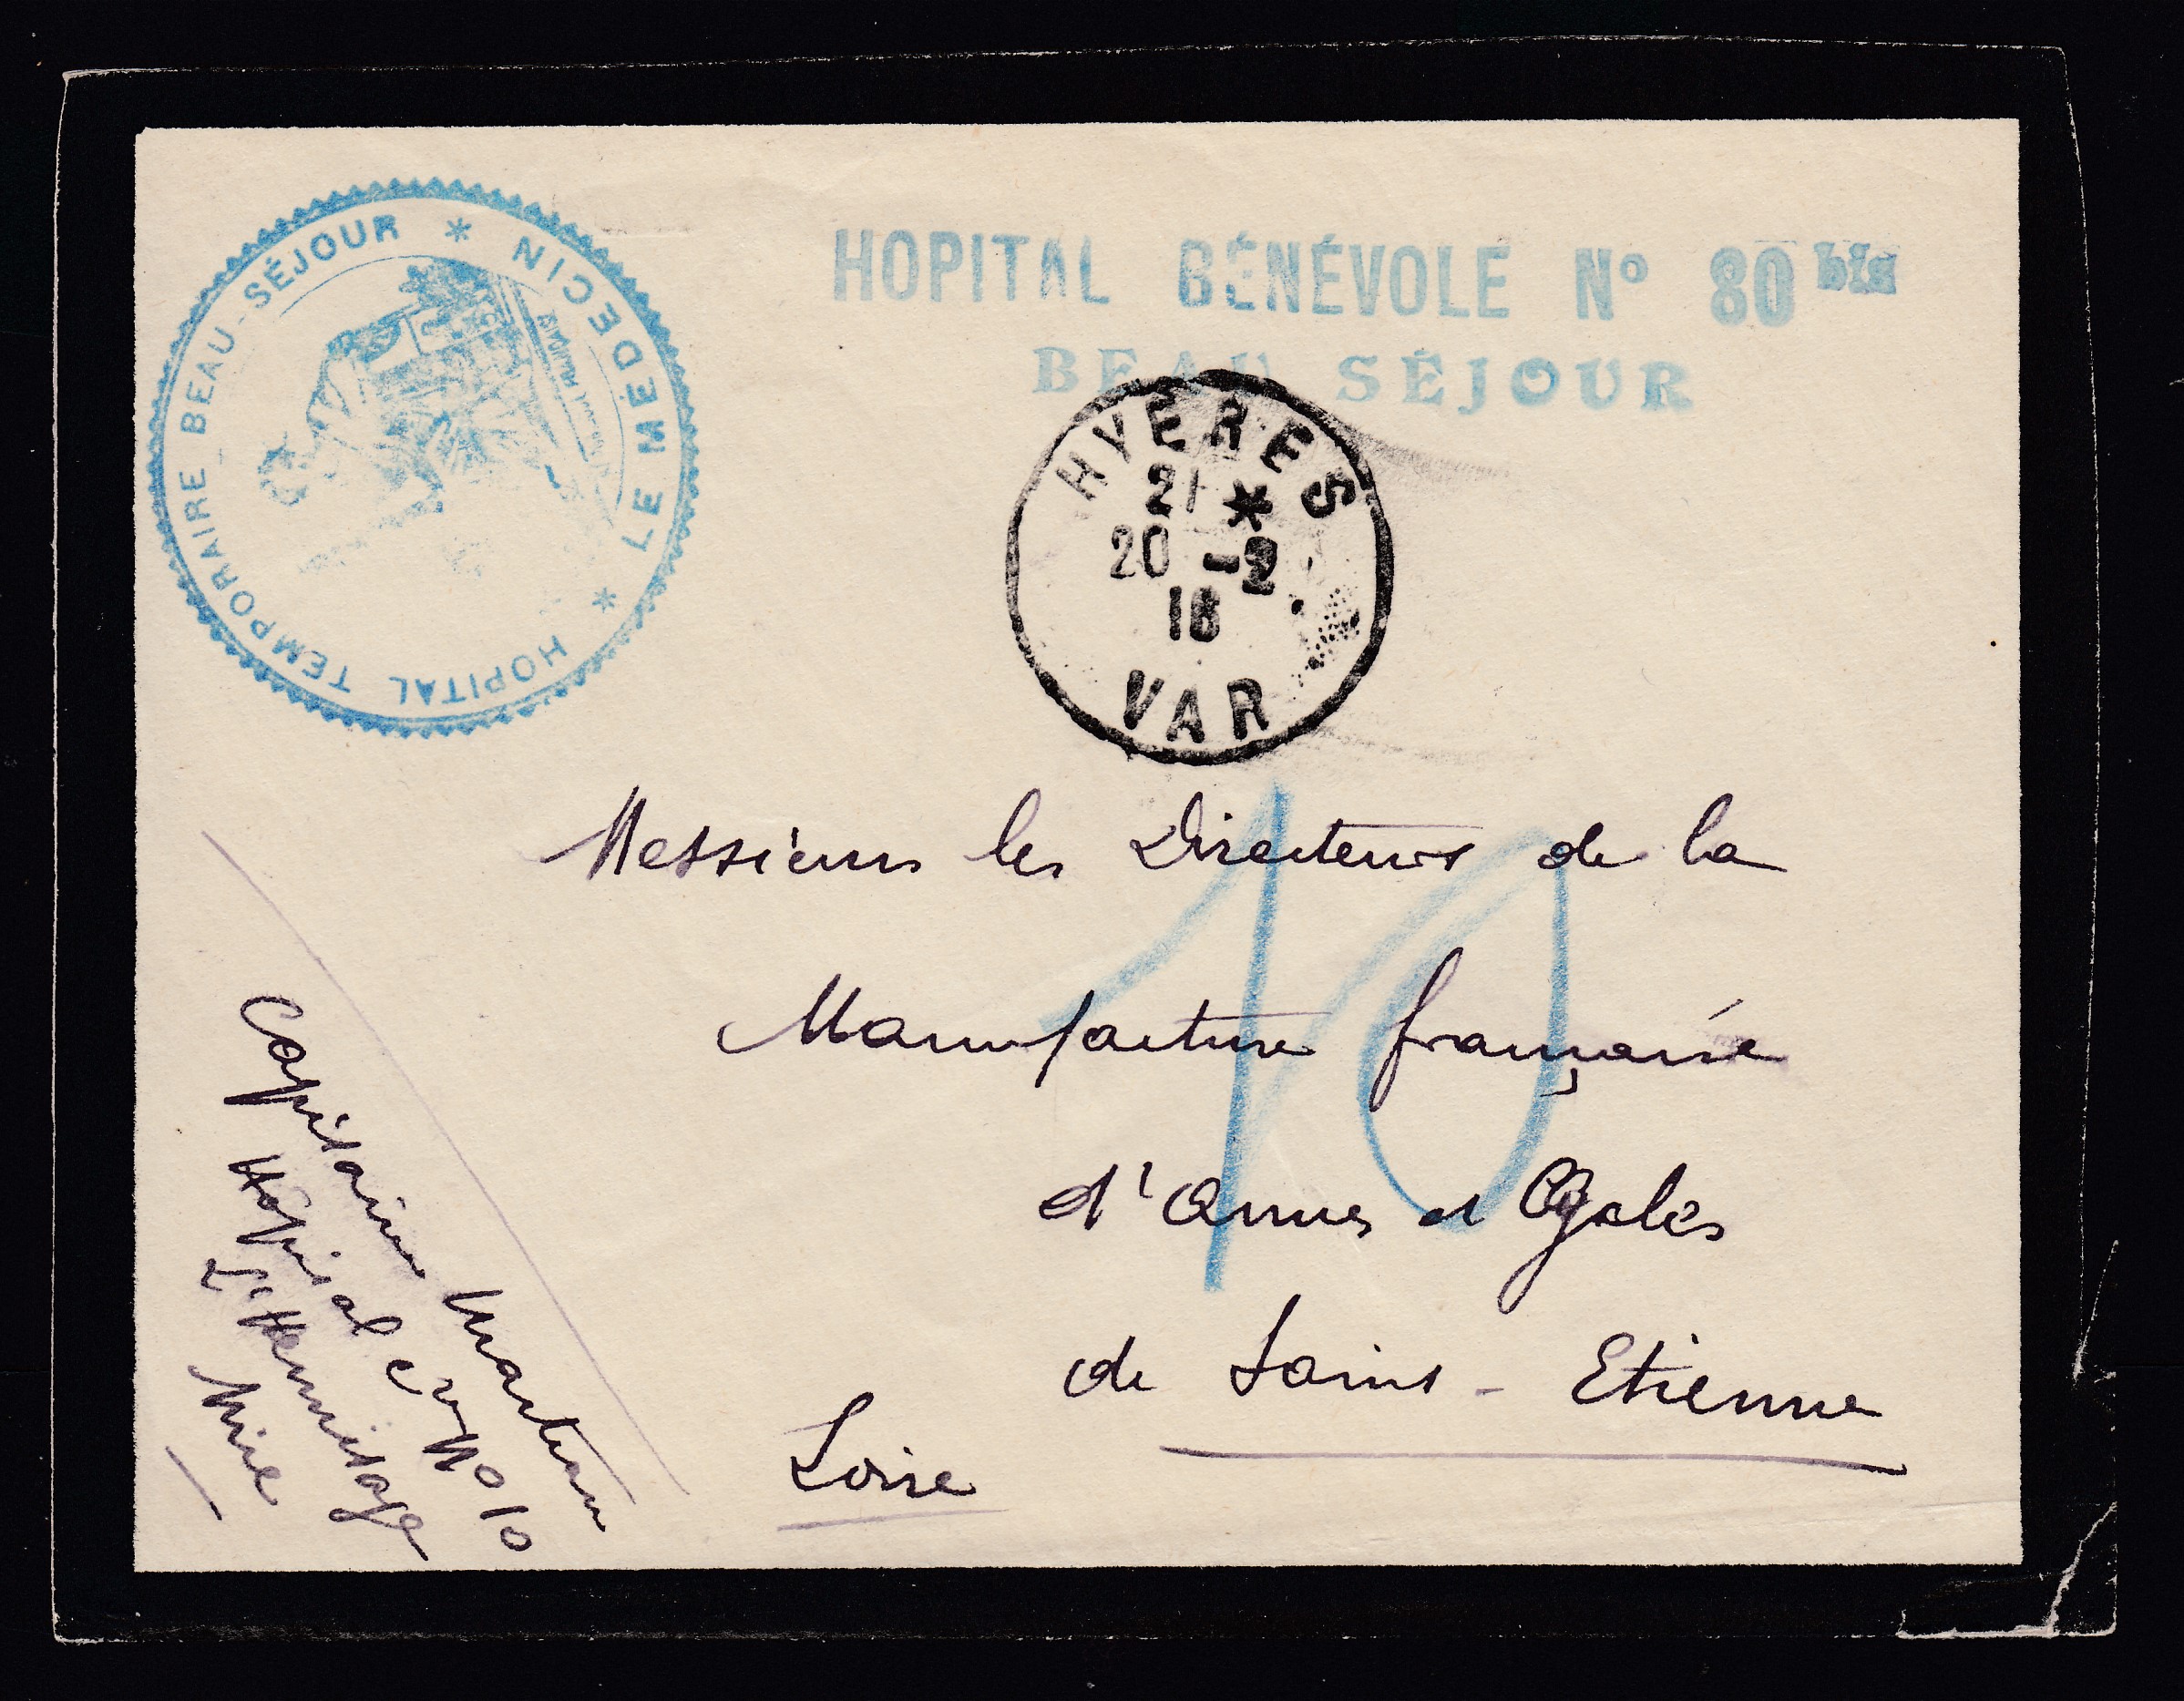 HOPITAL TEMPORAIRE BEAU-SÉJOUR * LE MÉDECIN *
HOPITAL BÉNÉVOLE No 80 bis
BEAU SÉJOUR
HYÈRES
21 *
20 -2
18
VAR
10
Messieurs les Directeurs de la
Manufacture française
d'Armes et Cycles
de Saint-Etienne
Loire
Capitaine Martin
Hôpital No 10
L'Hermitage
Nice